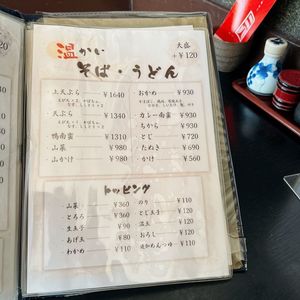 温かい
大盛
+￥120
そば・うどん
上天ぷら ￥1640
天ぷら ￥1340
鴨南蛮 ￥1310
山菜 ￥980
山かけ ￥980
おかめ ￥930
カレー南蛮 ￥930
ちから ￥930
とじ ￥720
たぬき ￥690
かけ ￥560
トッピング
山菜 ￥360
とろろ ￥360
生玉子 ￥90
あげ玉 ￥110
わかめ ￥110
のり ￥110
とじ玉子 ￥110
温玉 ￥110
おろし ￥110
追加めんつゆ ￥110